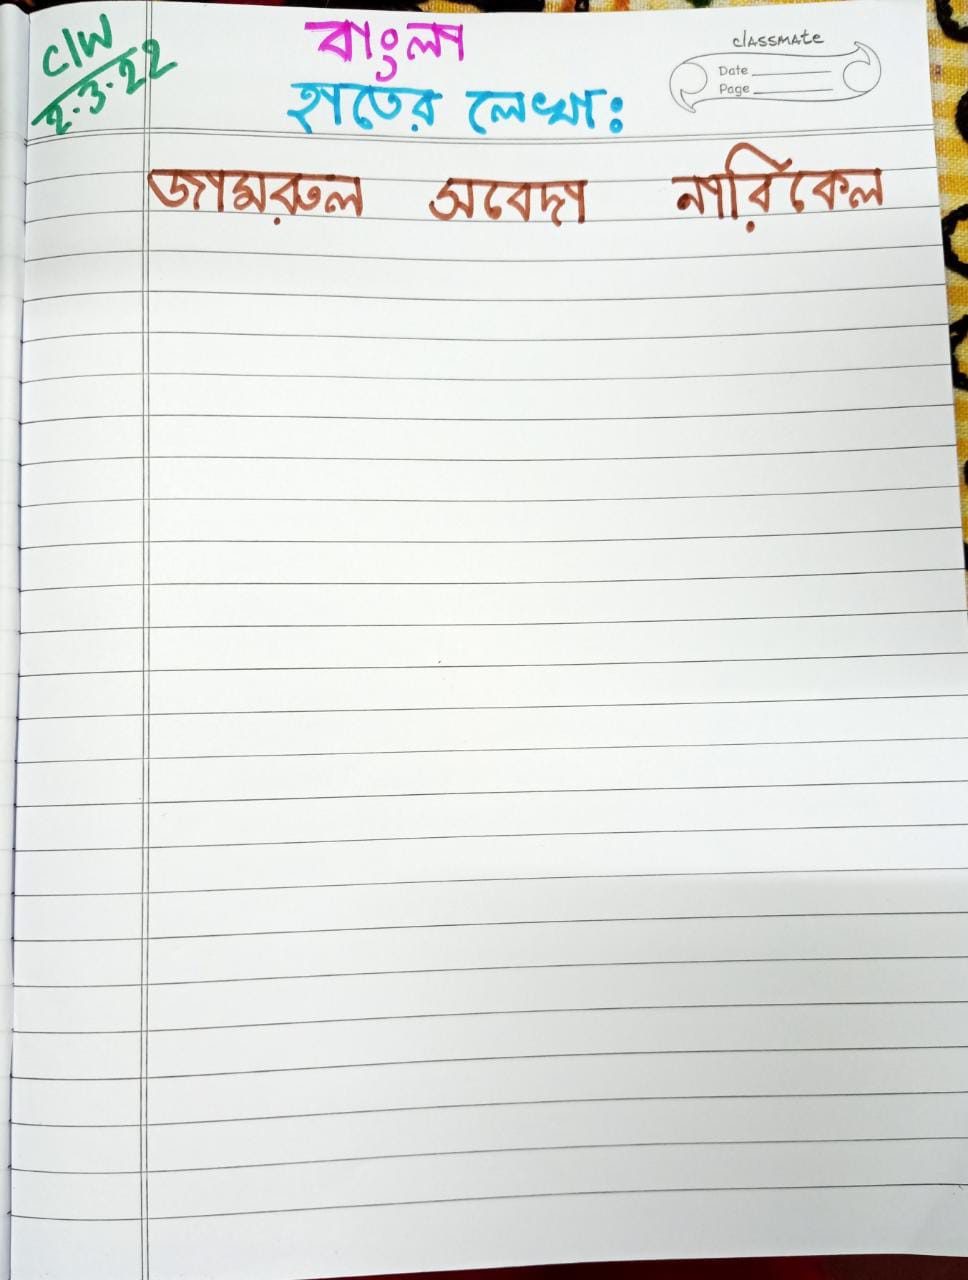 C/W
2.3.22
বাংলা
হাতের লেখা:
classmate
Date
Page
জামরুল অবেদা নারিকেল